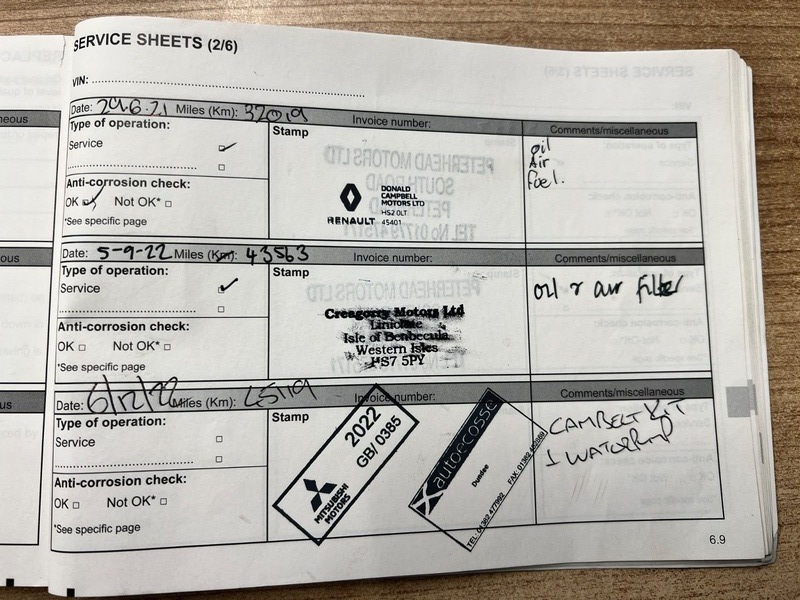 SERVICE SHEETS (2/6)
VIN:
Date: 29.6.21 Miles (Km): 32019 Invoice number:
Type of operation:
Service
Anti-corrosion check:
OK Not OK*
*See specific page
Stamp
RENAULT
DONALD
CAMPBELL
MOTORS LTD
HS2 0LT
45401
Comments/miscellaneous
oil
Air
fuel.
Date: 5-9-22 Miles (Km): 43563 Invoice number:
Type of operation:
Service
Anti-corrosion check:
OK Not OK*
*See specific page
Stamp
Creagorry Motors Ltd
Liniclate
Isle of Benbecula
Western Isles
HS7 5PY
Comments/miscellaneous
oil & air filter
Date: 6/12/22 Miles (Km): Invoice number:
Type of operation:
Service
Anti-corrosion check:
OK Not OK*
*See specific page
Stamp
MITSUBISHI
MOTORS
2022
GB/ 0385
autoecosse
Dundee
TEL: 01382 477992 FAX:
Comments/miscellaneous
CAMBELT KIT
6.9